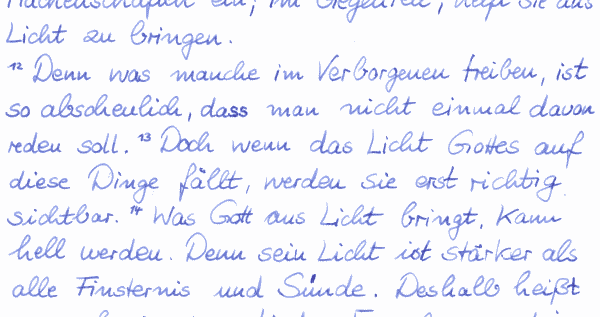 Machenschaften ein; im Gegenteil, helft sie ans
Licht zu bringen.
¹² Denn was manche im Verborgenen treiben, ist
so abscheulich, dass man nicht einmal davon
reden soll. ¹³ Doch wenn das Licht Gottes auf
diese Dinge fällt, werden sie erst richtig
sichtbar. ¹⁴ Was Gott ans Licht bringt, kann
hell werden. Denn sein Licht ist stärker als
alle Finsternis und Sünde. Deshalb heißt